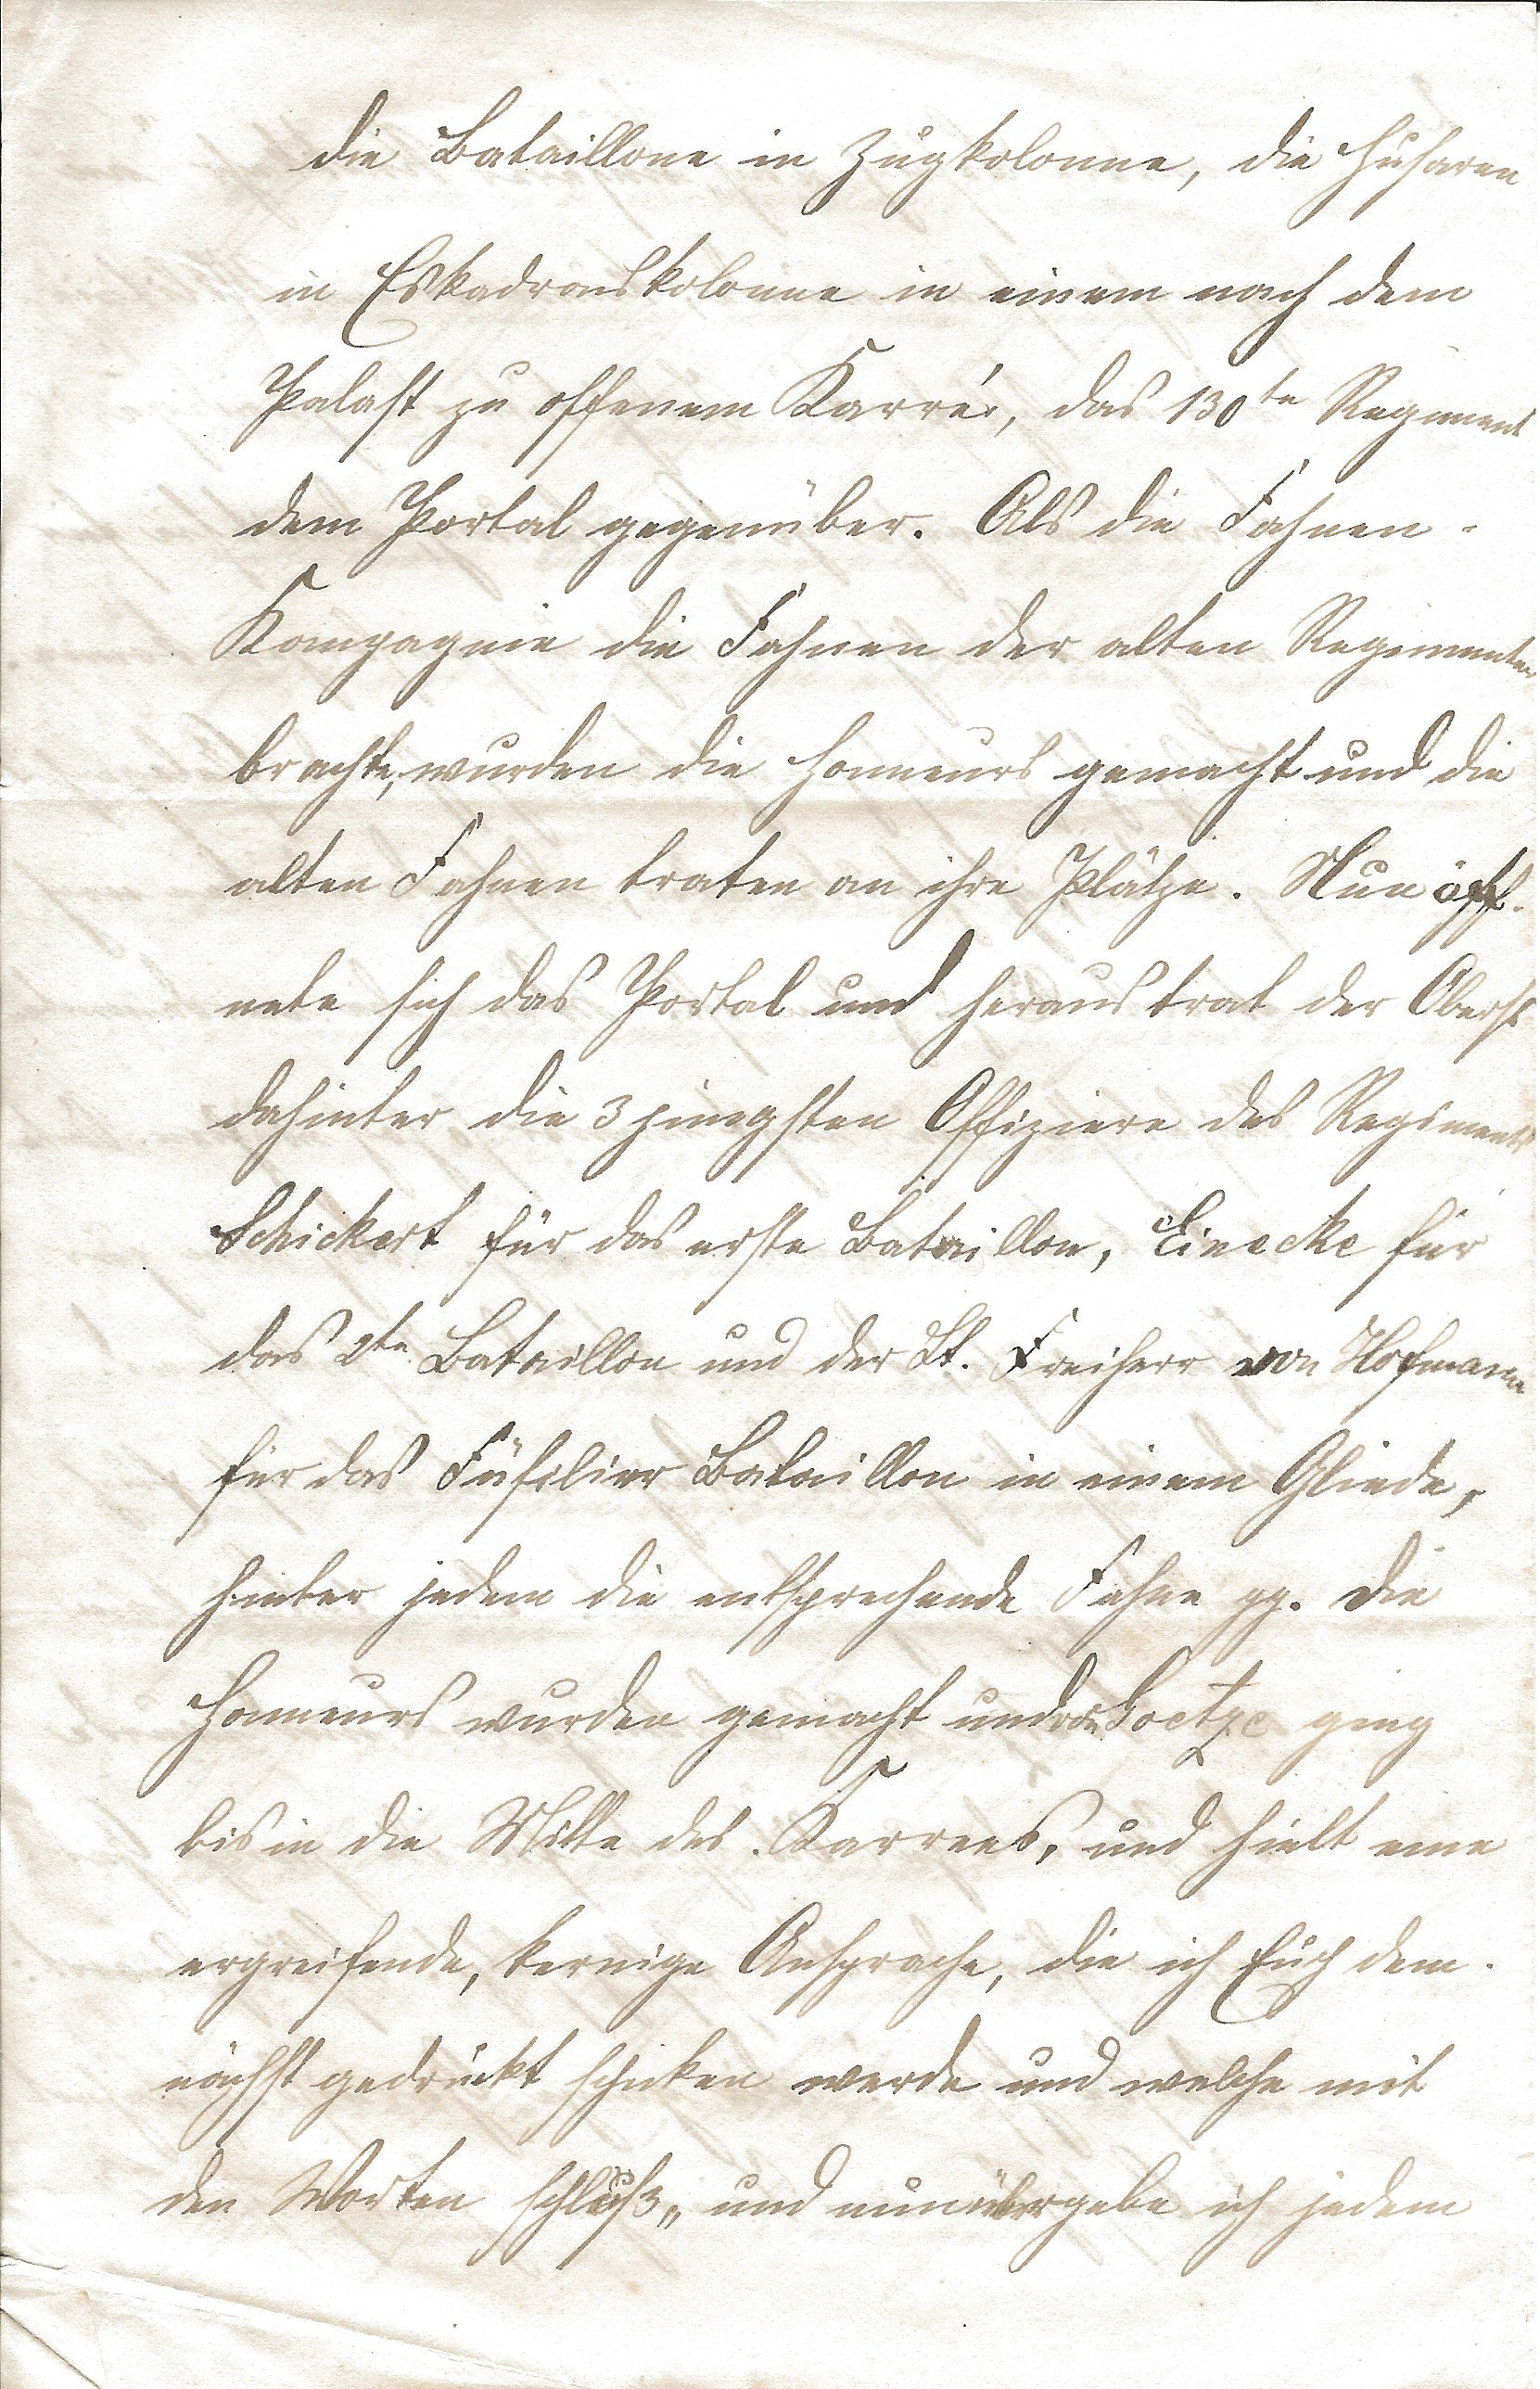 die Bataillone in Zugkolonne, die Husaren
in Eskadronskolonne in einem nach dem
Palast zu offenem Karrée, das 130te Regiment
dem Portal gegenüber. Als die Fahnen-
Kompagnie die Fahnen der alten Regimenter
brachte, wurden die Honneurs gemacht und die
alten Fahnen traten an ihre Plätze. Nun öff-
nete sich das Portal und heraus trat der Oberst
dahinter die 3 jüngsten Offiziere des Regiments
Schickert für das erste Bataillon, Einecke für
das 2te Bataillon und der Lt. Freiherr von Hofmann
für das Füsilier Bataillon in einem Gliede,
hinter jedem die entsprechende Fahne pp. Die
Honneurs wurden gemacht und von ging
bis in die Mitte des Karrees, und hielt eine
ergreifende, kernige Ansprache, die ich Euch dem-
nächst gedruckt schicken werde und welche mit
den Worten schloß „ und nun übergebe ich jedem